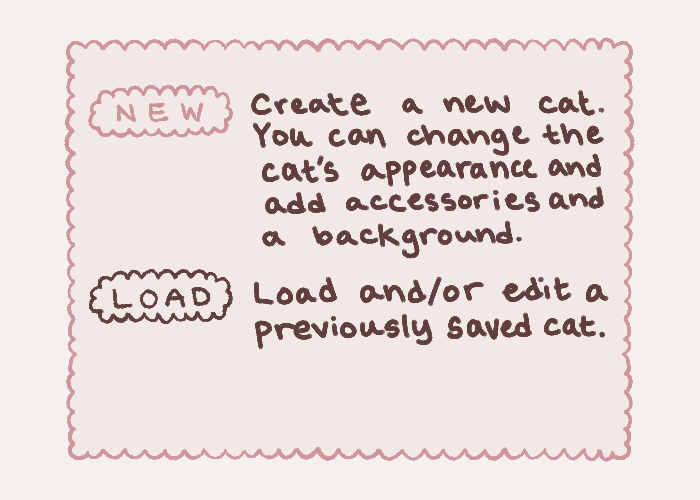 NEW
Create a new cat.
You can change the
cat's appearance and
add accessories and
a background.
LOAD
Load and/or edit a
previously saved cat.